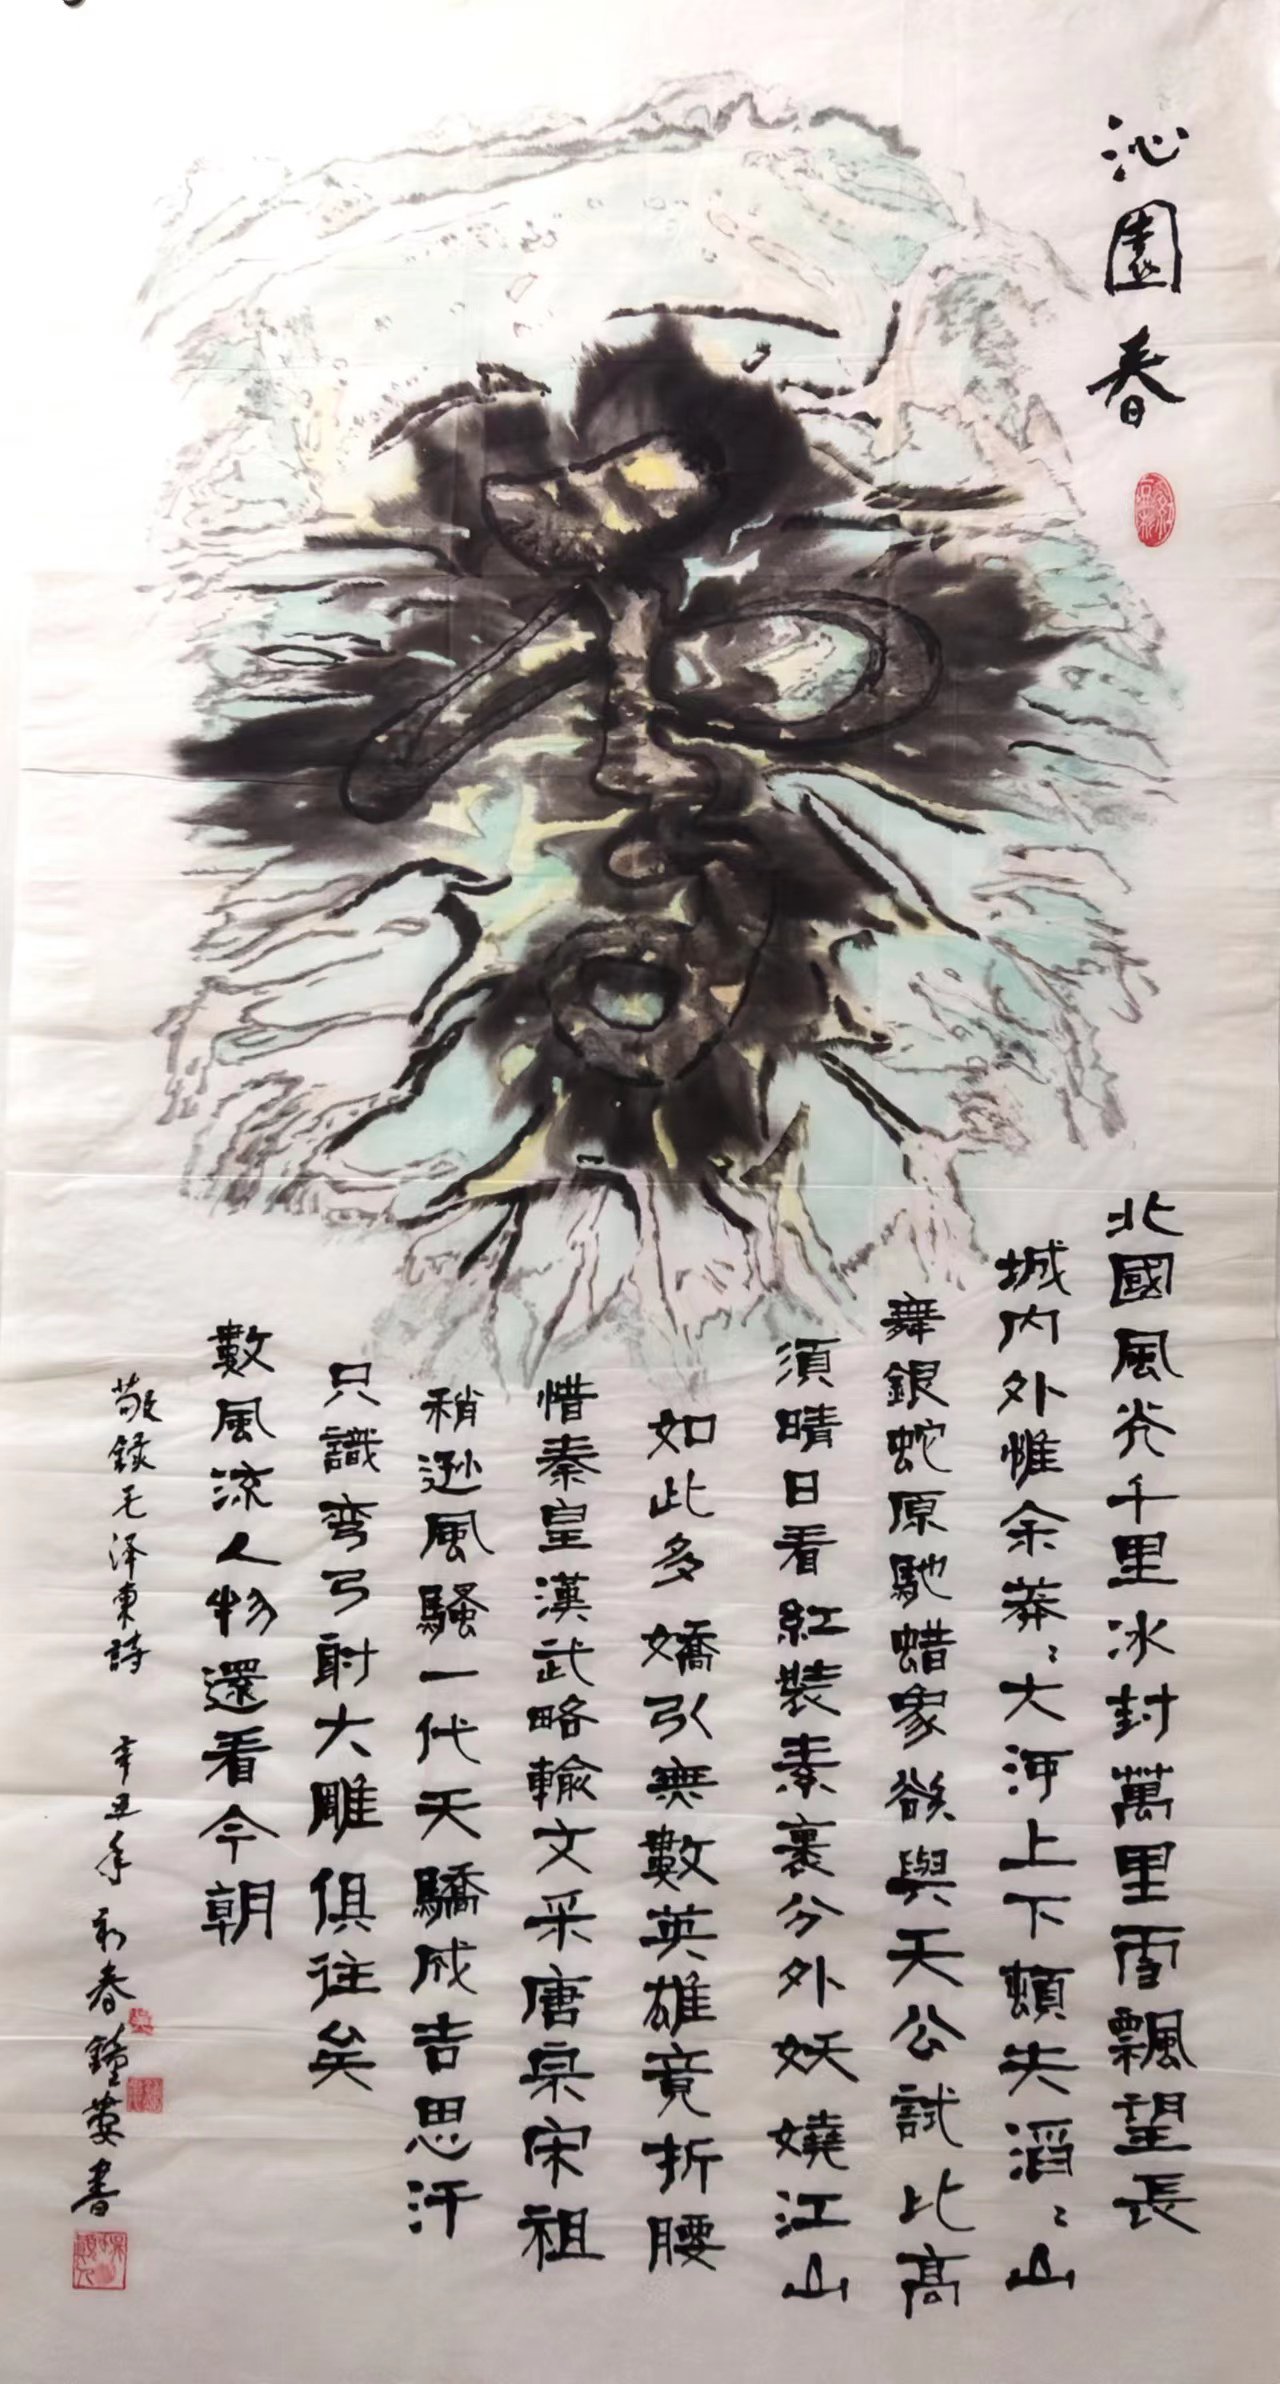 沁園春
北國風光千里冰封萬里雪飄望長
城内外惟余莽〻大河上下頓失滔〻山
舞銀蛇原馳蜡象欲與天公試比高
須晴日看紅裝素裹分外妖嬈江山
如此多嬌引無數英雄竟折腰
惜秦皇漢武略輸文采唐宗宋祖
稍遜風騷一代天驕成吉思汗
只識彎弓射大雕俱往矣
數風流人物還看今朝
敬録毛泽東詩 辛丑年 初春鐘蔓書